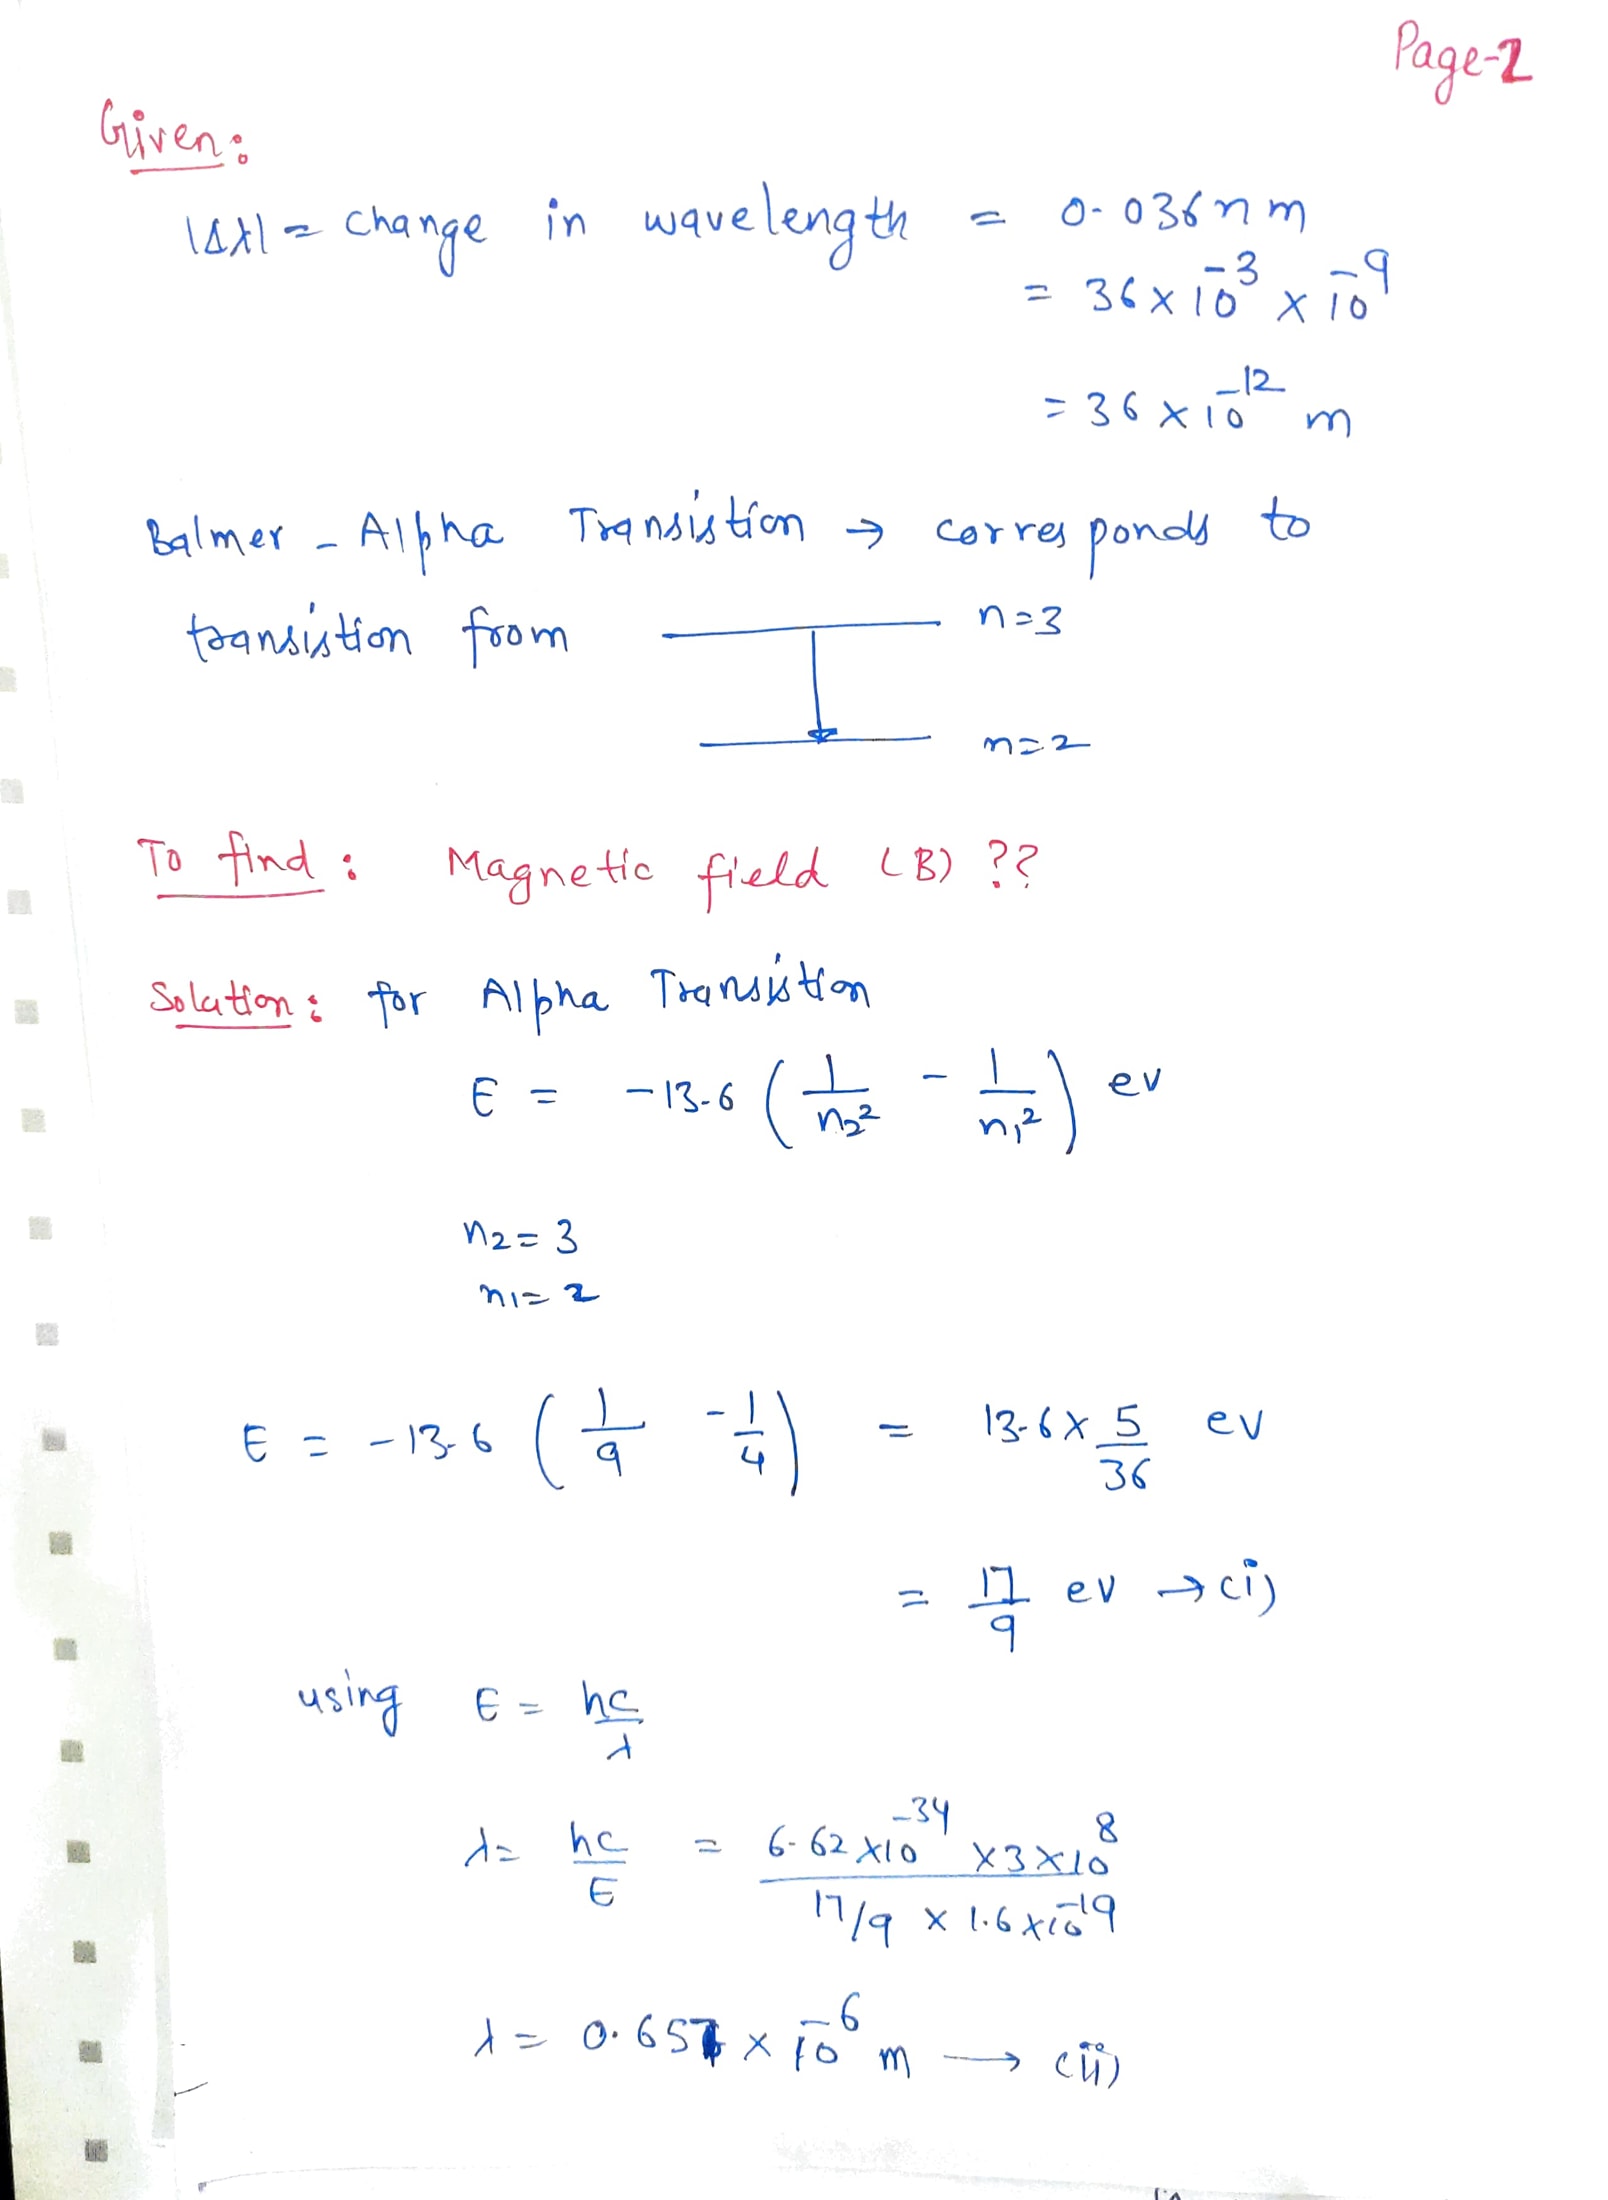 Page-2
Given:
|Δλ| = change in wavelength = 0.036nm
= 36 x 10⁻³ x 10⁻⁹
= 36 x 10⁻¹² m
Balmer - Alpha Transistion → corresponds to
transistion from n=3
n=2
To find: Magnetic field (B) ??
Solution: for Alpha Transistion
E = -13.6 (1/n₂² - 1/n₁²) ev
n₂ = 3
n₁ = 2
E = -13.6 (1/9 - 1/4) = 13.6 x 5/36 ev
= 17/9 ev → (i)
using E = hc/λ
λ = hc/E = 6.62 x 10⁻³⁴ x 3 x 10⁸ / 17/9 x 1.6 x 10⁻¹⁹
λ = 0.657 x 10⁻⁶ m → (ii)